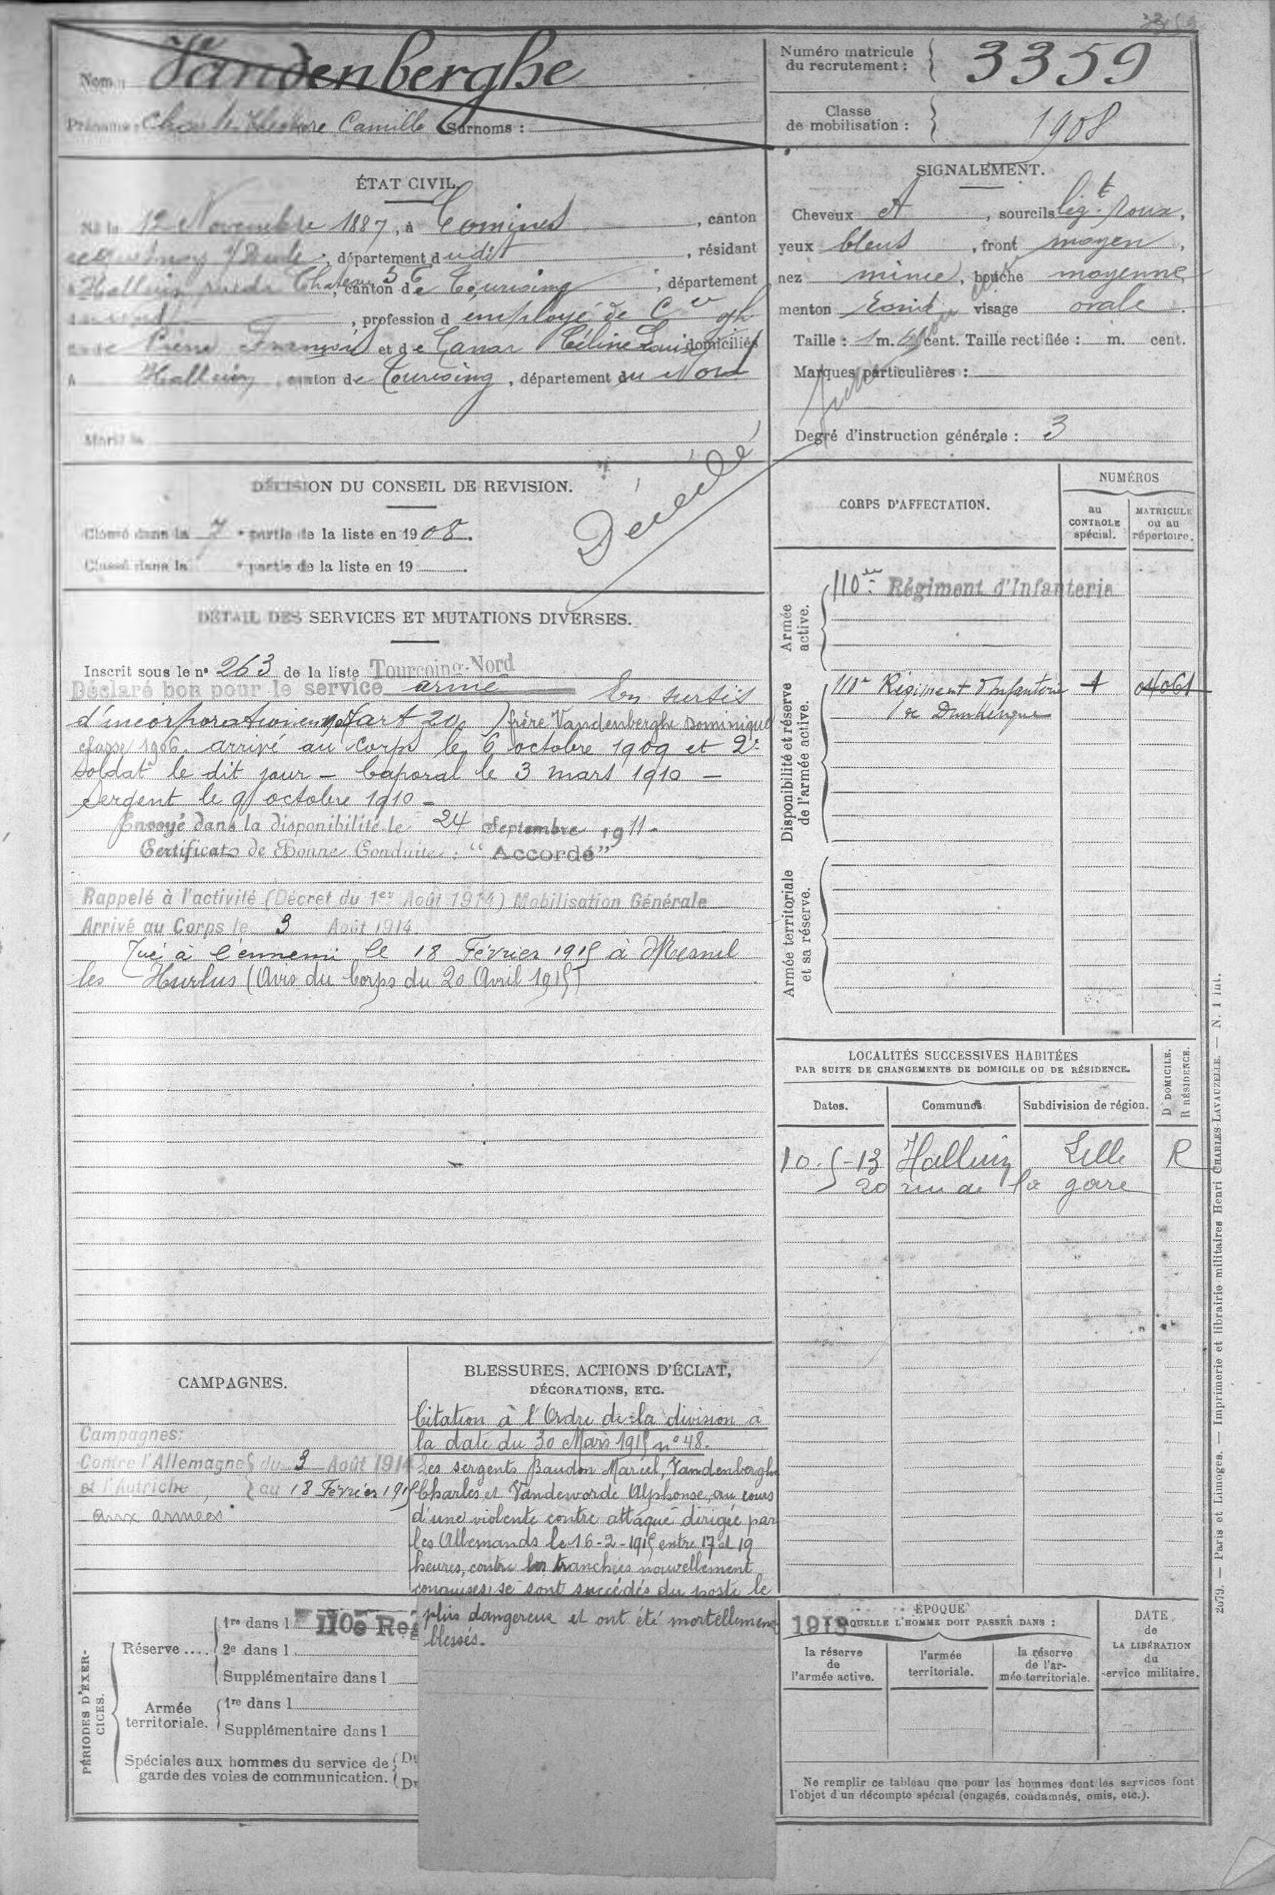 3359
Nom : Vandenberghe
Numéro matricule du recrutement : 3359
Prénoms : Camille Surnoms :
Classe de mobilisation : 1908
ÉTAT CIVIL.
Né le 12 Novembre 1887, à Comines, canton
, département dudit, résidant
à Halluin rue du Chateau 56, canton de Tourcoing, département
, profession d employé de Cce
Pierre François et de Céline Louise domiciliés
à Halluin, canton de Tourcoing, département du Nord
Marié le
SIGNALEMENT.
Cheveux , sourcils ligt roux,
yeux bleus, front moyen,
nez mince, bouche moyenne
menton rond visage ovale.
Taille : 1 m. cent. Taille rectifiée : m. cent.
Marques particulières :
Degré d'instruction générale : 3
DÉCISION DU CONSEIL DE REVISION.
Classé dans la 7e partie de la liste en 1908.
Classé dans la e partie de la liste en 19
Décédé
DÉTAIL DES SERVICES ET MUTATIONS DIVERSES.
Inscrit sous le n° 263 de la liste Tourcoing-Nord
Déclaré bon pour le service armé En sursis
d'incorporation art 20 frère Vandenberghe Dominique
classe 1906. arrivé au corps le 6 octobre 1909 et 2e
soldat le dit jour – Caporal le 3 mars 1910 –
Sergent le 9 octobre 1910 –
Envoyé dans la disponibilité le 24 Septembre 1911.
Certificat de Bonne Conduite : "Accordé"
Rappelé à l'activité (Décret du 1er Août 1914) Mobilisation Générale
Arrivé au Corps le 3 Août 1914
Tué à l'ennemi le 18 Février 1915 à Mesnil
les Hurlus (Avis du Corps du 20 Avril 1915)
CORPS D'AFFECTATION.
NUMÉROS
au CONTROLE spécial.
MATRICULE ou au répertoire.
Armée active.
110me Régiment d'Infanterie
Disponibilité et réserve de l'armée active.
110e Régiment d'Infanterie
de Dunkerque
Armée territoriale et sa réserve.
LOCALITÉS SUCCESSIVES HABITÉES
PAR SUITE DE CHANGEMENTS DE DOMICILE OU DE RÉSIDENCE.
Dates. Communes Subdivision de région. D DOMICILE. R RÉSIDENCE.
10-5-13 Halluin Lille R
20 rue de la gare
CAMPAGNES.
Campagnes:
Contre l'Allemagne du 3 Août 1914
et l'Autriche, au 18 Février 1915
aux armées
BLESSURES, ACTIONS D'ÉCLAT,
DÉCORATIONS, ETC.
Citation à l'Ordre de la division à
la date du 30 Mars 1915 n° 48.
Les sergents Baudon Marcel, Vandenberghe
Charles et Vandeworde Alphonse, au cours
d'une violente contre attaque dirigée par
les Allemands le 16-2-1915 entre 17 et 19
heures, contre les tranchées nouvellement
conquises, se sont succédés du poste le
plus dangereux et ont été mortellement
blessés.
PÉRIODES D'EXERCICES.
Réserve ....
1re dans l 110e Rég
2e dans l
Supplémentaire dans l
Armée territoriale.
1re dans l
Supplémentaire dans l
Spéciales aux hommes du service de
garde des voies de communication.
Du
Du
1913
ÉPOQUE
A LAQUELLE L'HOMME DOIT PASSER DANS :
la réserve de l'armée active.
l'armée territoriale.
la réserve de l'armée territoriale.
DATE de LA LIBÉRATION du service militaire.
Ne remplir ce tableau que pour les hommes dont les services font
l'objet d'un décompte spécial (engagés, condamnés, omis, etc.).
2079. — Paris et Limoges. — Imprimerie et librairie militaires Henri CHARLES-LAVAUZELLE. — N. 1 int.